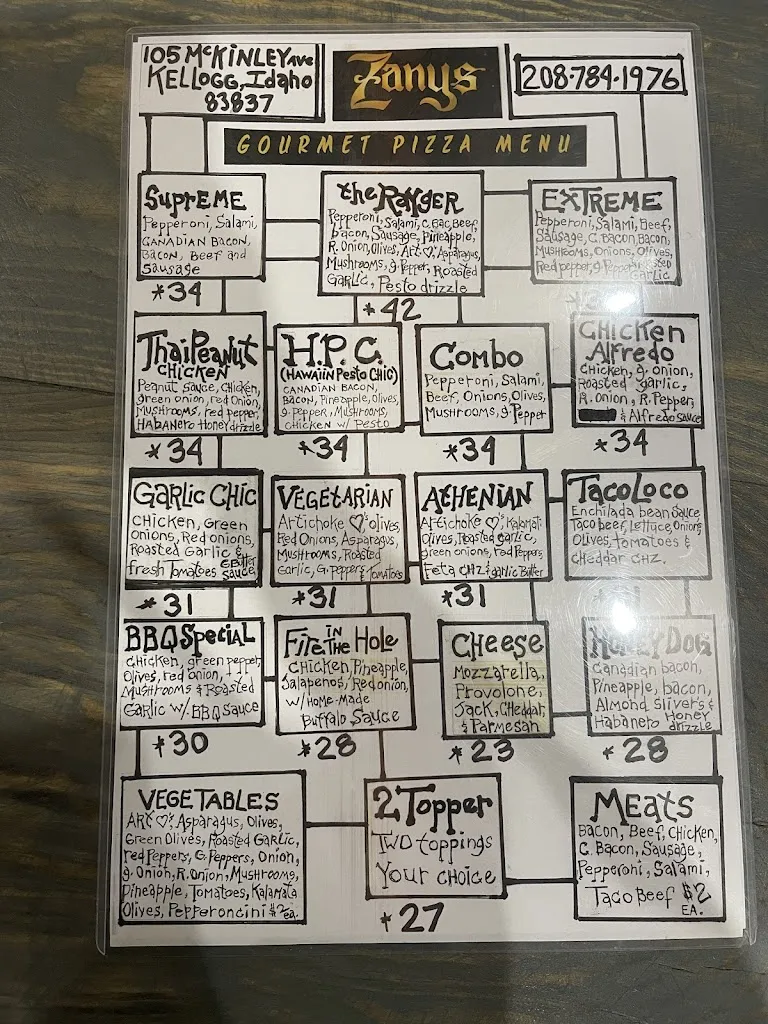 105 McKINLEY Ave
KELLOGG, Idaho
83837
Zanys
208-784-1976
GOURMET PIZZA MENU
SuprEME
Pepperoni, Salami,
CANADIAN BACON,
Bacon, Beef and
Sausage
*34
the RANGER
Pepperoni, Salami, C. Bac, Beef,
bacon, Sausage, Pineapple,
R. Onion, Olives, Art ♡, Asparagus,
Mushrooms, g. Pepper, Roasted
Garlic, Pesto drizzle
*42
EXTREME
Pepperoni, Salami, Beef,
Sausage, C. Bacon, Bacon,
Mushrooms, Onions, Olives,
Red pepper, g. Pepper, Roasted
Garlic
Thai Peanut
CHICKEN
Peanut Sauce, Chicken,
green onion, red Onion,
Mushrooms, red pepper,
Habanero Honey drizzle
*34
H.P.C.
(HAWAIIN Pesto CHIC)
CANADIAN BACON,
Bacon, Pineapple, Olives,
g. pepper, Mushrooms,
Chicken w/ Pesto
*34
Combo
Pepperoni, Salami,
Beef, Onions, Olives,
Mushrooms, g. Pepper
*34
CHicken
Alfredo
Chicken, g. onion,
Roasted garlic,
R. Onion, R. Pepper,
& Alfredo sauce
*34
GARLIC CHIC
CHicken, Green
Onions, Red onions,
Roasted Garlic &
fresh Tomatoes G Butter
Sauce
*31
VEGETARIAN
Artichoke ♡, olives,
Red Onions, Asparagus,
Mushrooms, Roasted
Garlic, G. Peppers & Tomatoes
*31
ATHENIAN
Artichoke ♡, Kalamata
Olives, Roasted garlic,
green onions, red Peppers,
Feta CHZ & garlic Butter
*31
TacoLoco
Enchilada bean Sauce
Taco beef, Lettuce, Onions
Olives, Tomatoes &
Cheddar CHZ.
BBQ Special
Chicken, green pepper,
Olives, red onion,
Mushrooms & Roasted
Garlic w/ BBQ Sauce
*30
Fire IN THE Hole
CHicken, Pineapple,
Jalapenos, Red onion,
w/ Home-Made
Buffalo Sauce
*28
CHeese
Mozzarella,
Provolone,
Jack, Cheddar,
& Parmesan
*23
HONEY DOG
Canadian bacon,
Pineapple, bacon,
Almond Slivers &
Habanero Honey
drizzle
*28
VEGETABLES
ART ♡, Asparagus, Olives,
Green Olives, Roasted Garlic,
red Peppers, G. Peppers, Onion,
g. Onion, R. Onion, Mushrooms,
Pineapple, Tomatoes, Kalamata
Olives, Pepperoncini $2 ea.
2 Topper
Two toppings
Your choice
*27
Meats
Bacon, Beef, Chicken,
C. Bacon, Sausage,
Pepperoni, Salami,
Taco Beef $2
EA.